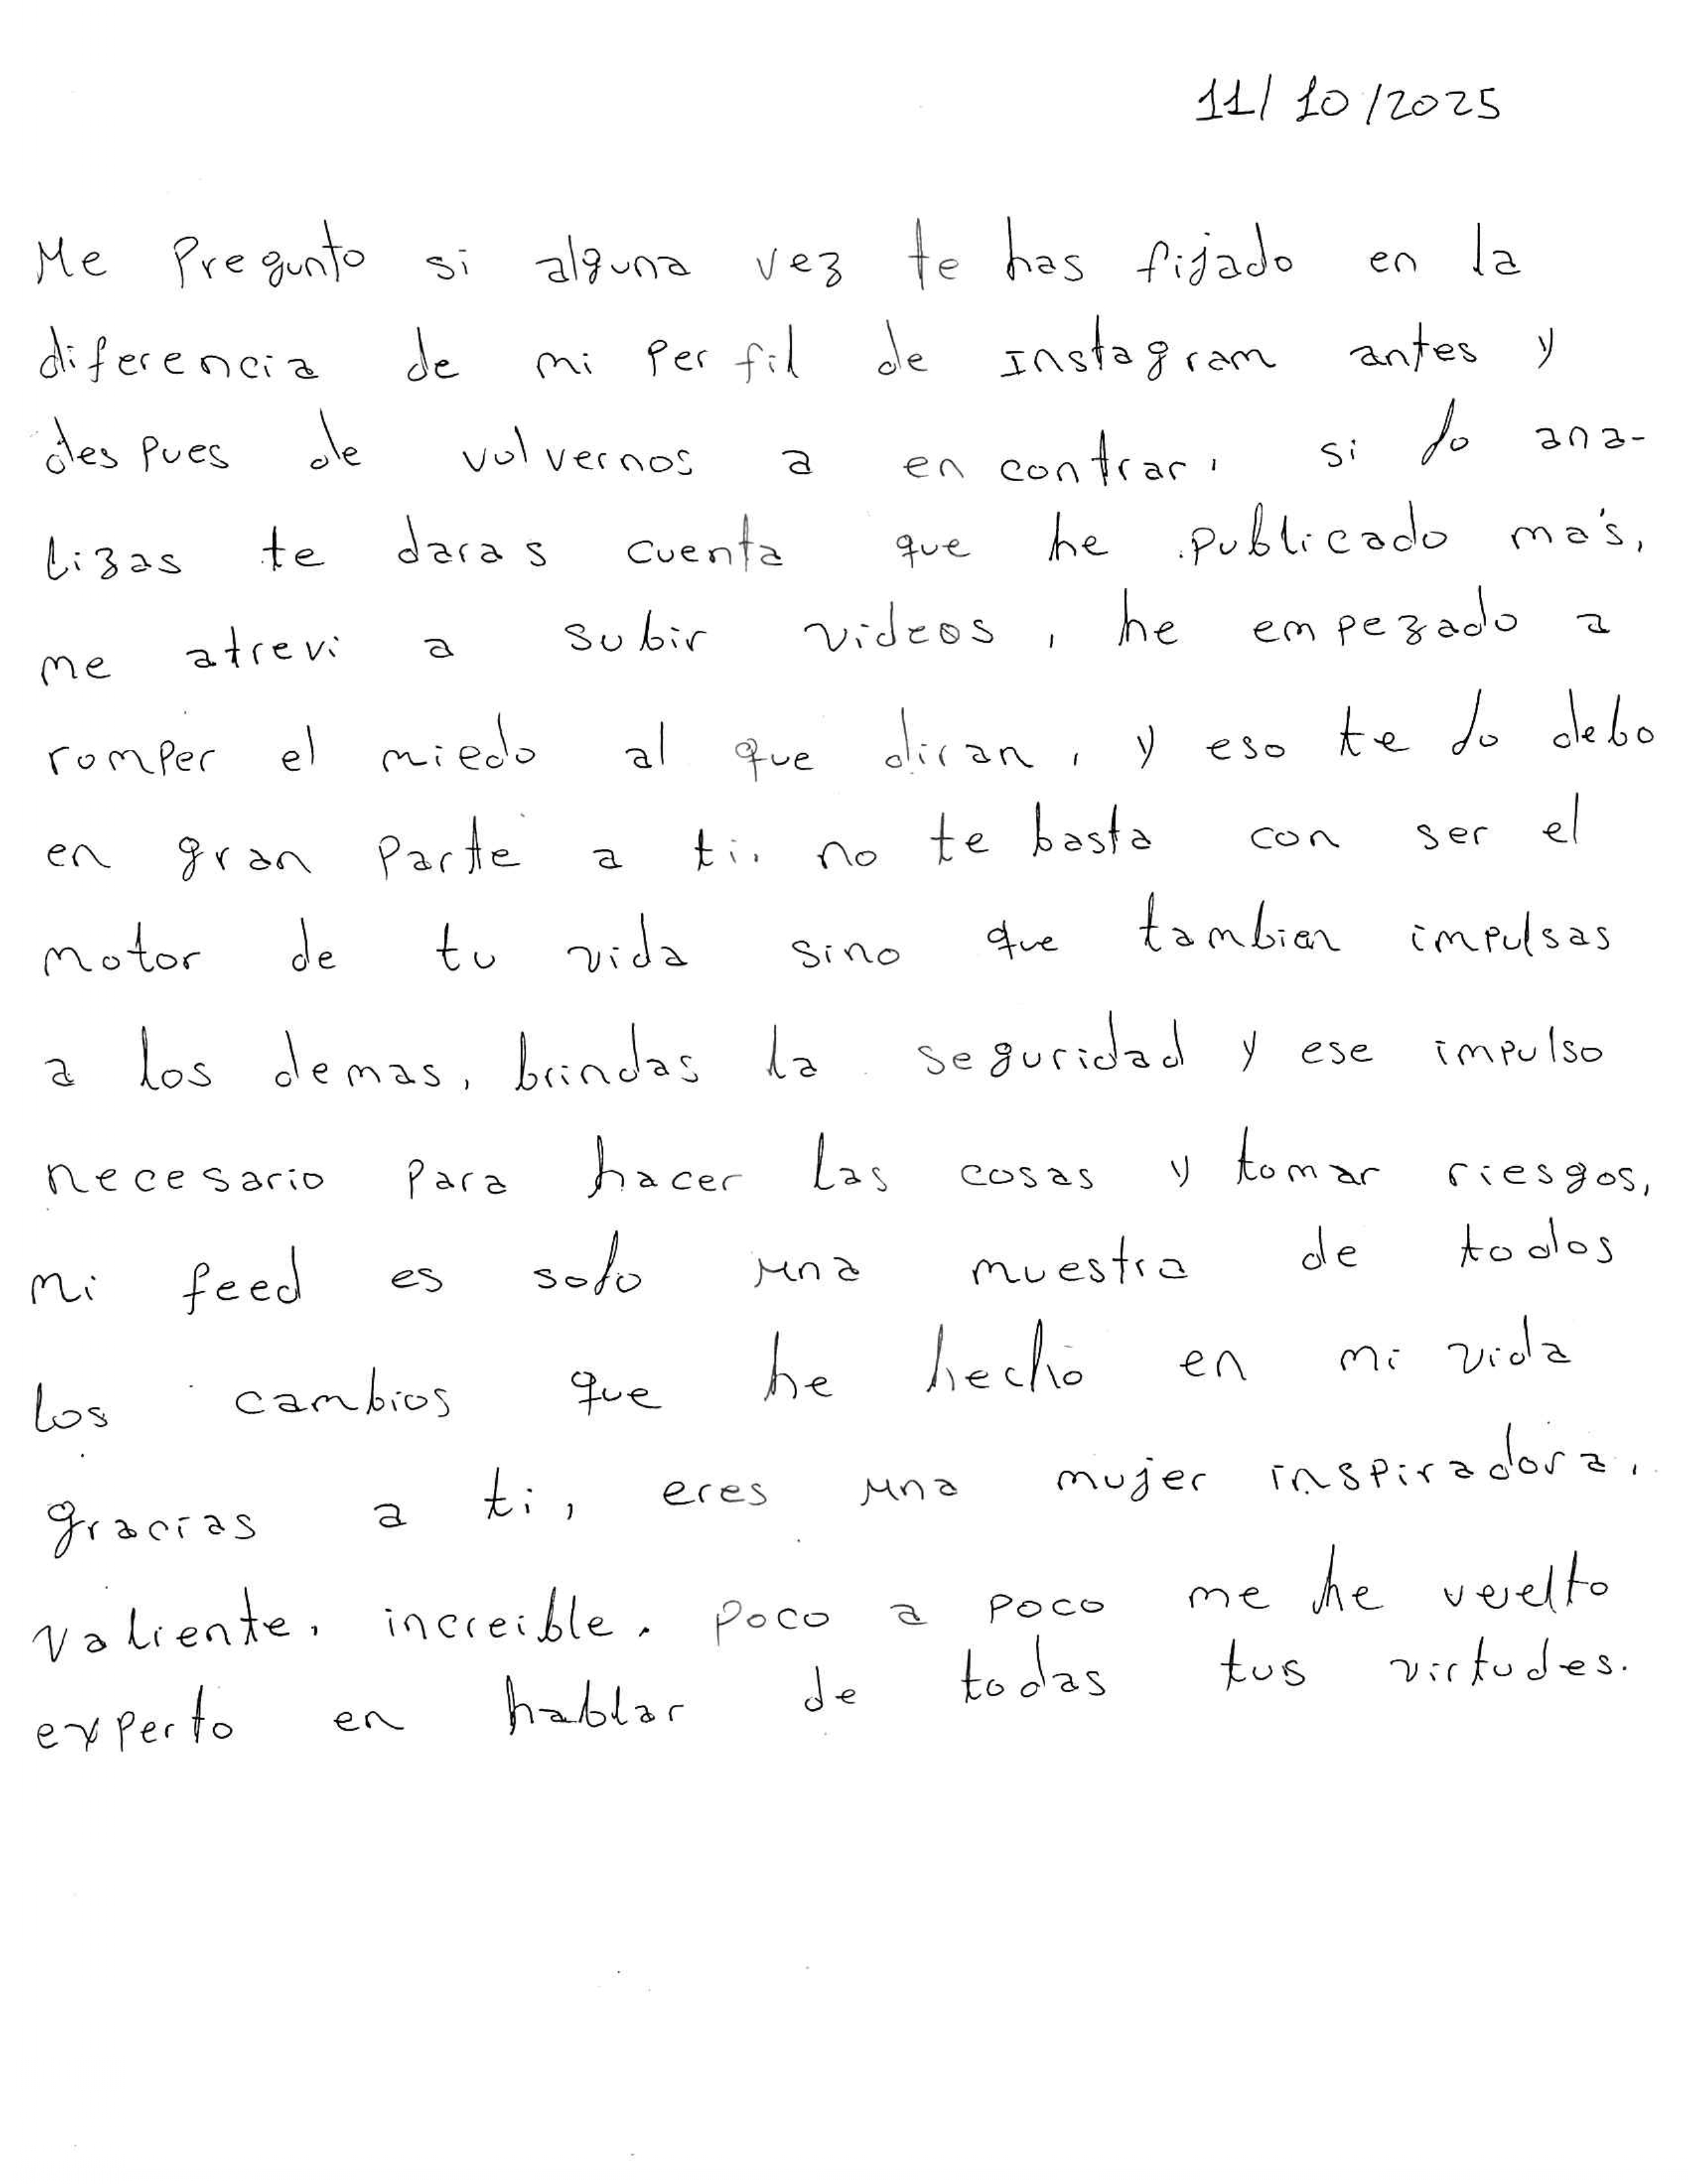 11/10/2025
Me Pregunto si alguna vez te has fijado en la
diferencia de mi Perfil de Instagram antes y
despues de volvernos a encontrar, si lo ana-
lizas te daras cuenta que he publicado más,
me atrevi a subir videos, he empezado a
romper el miedo al que diran, y eso te lo debo
en gran Parte a ti. no te basta con ser el
motor de tu vida sino que tambien impulsas
a los demas, brindas la seguridad y ese impulso
necesario para hacer las cosas y tomar riesgos,
mi feed es solo una muestra de todos
los cambios que he hecho en mi vida
gracias a ti, eres una mujer inspiradora,
valiente, increible. poco a poco me he vuelto
experto en hablar de todas tus virtudes.